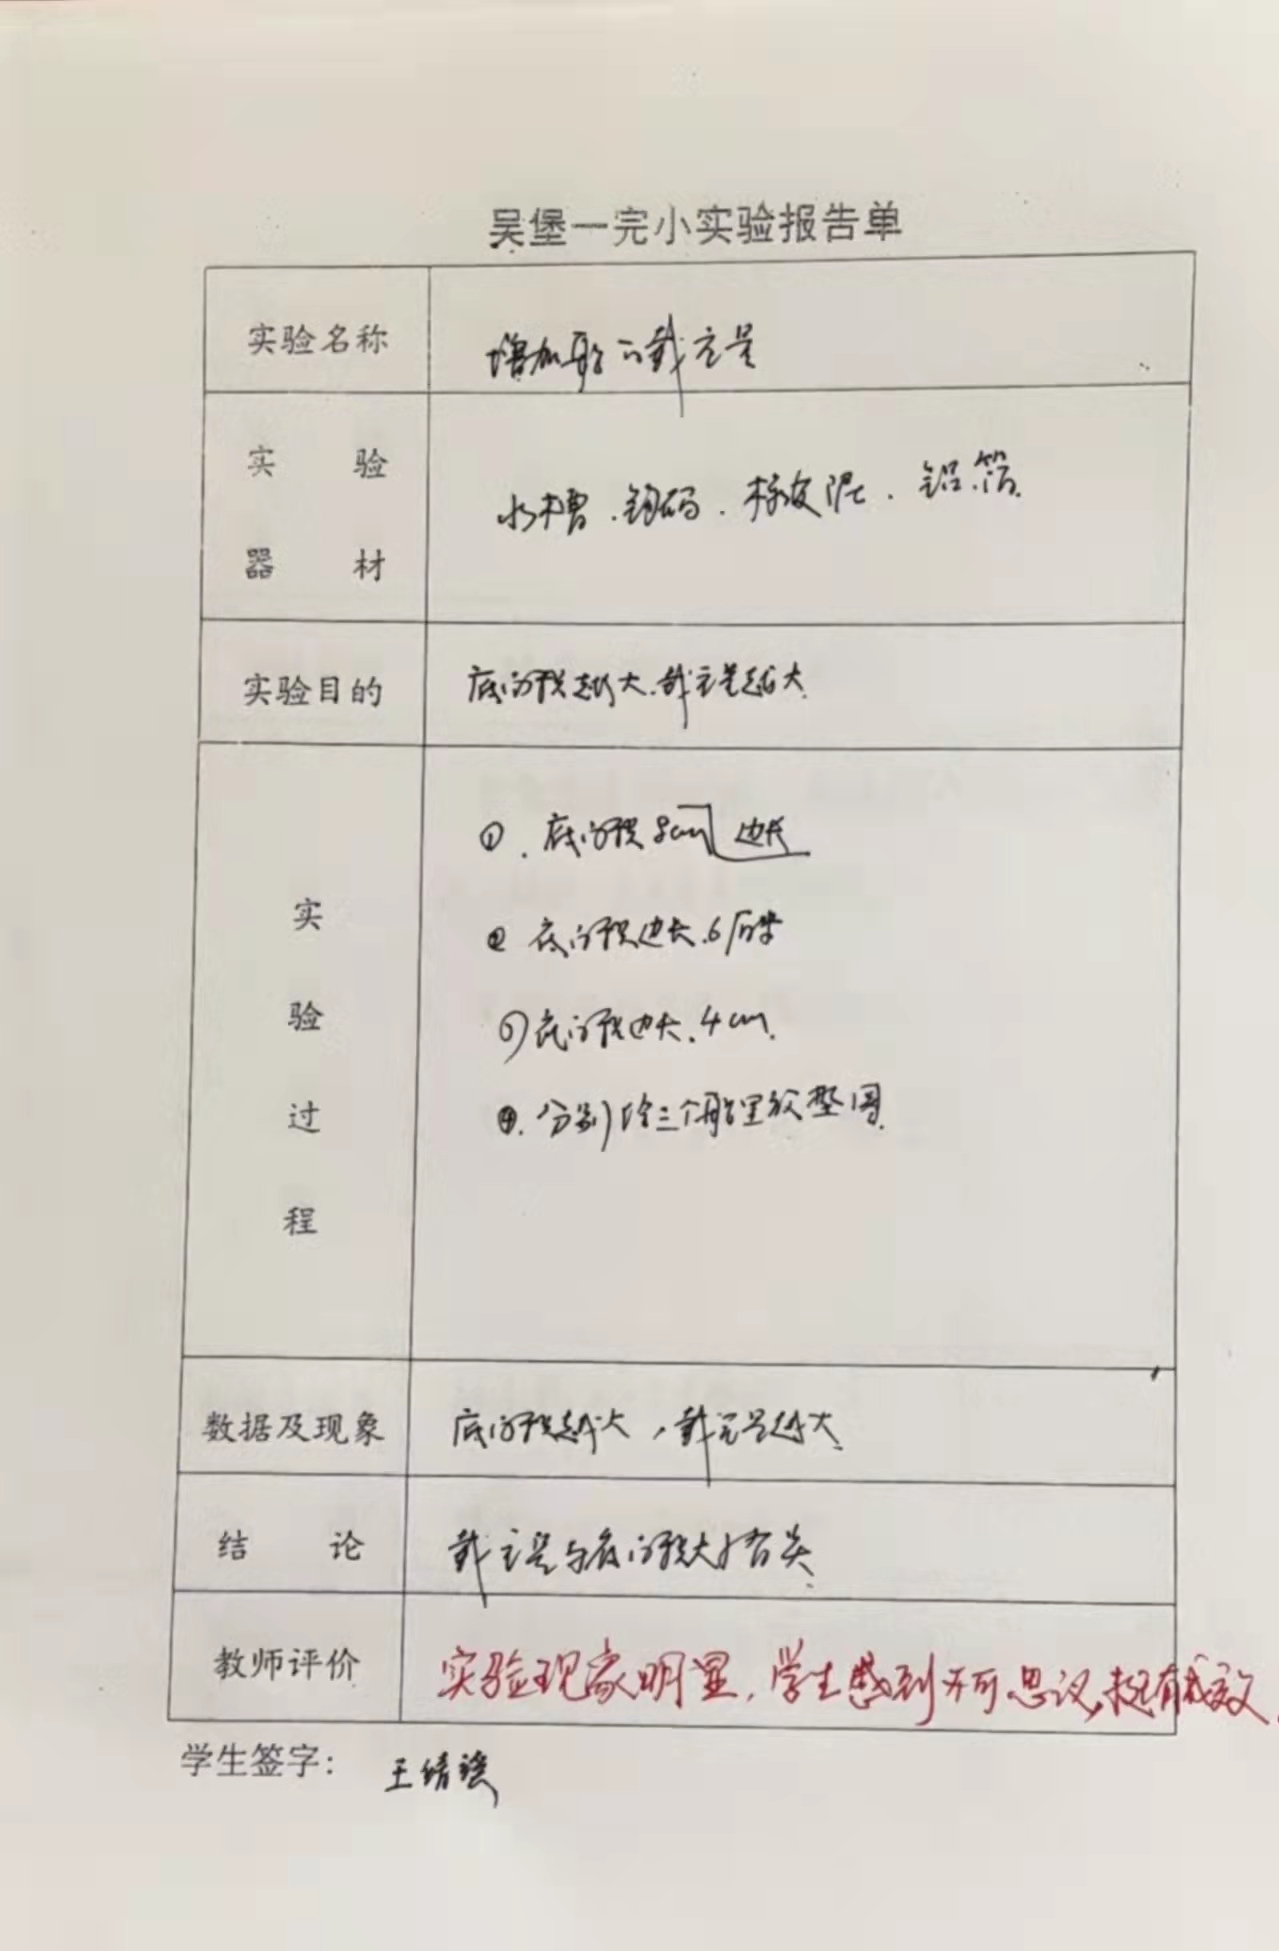 吴堡一完小实验报告单
实验名称 增加船的载重量
实验器材 水槽.钩码.橡皮泥.铝箔.
实验目的 底面积越大.载重量越大.
实验过程
①.底面积8cm边长
② 底面积边长.6厘米
③底面积边长.4cm.
④.分别给三个船里放垫圈.
数据及现象 底面积越大,载重量越大.
结论 载重量与底面积大小有关.
教师评价 实验现象明显,学生感到不可思议,挺有成效.
学生签字: 王绪